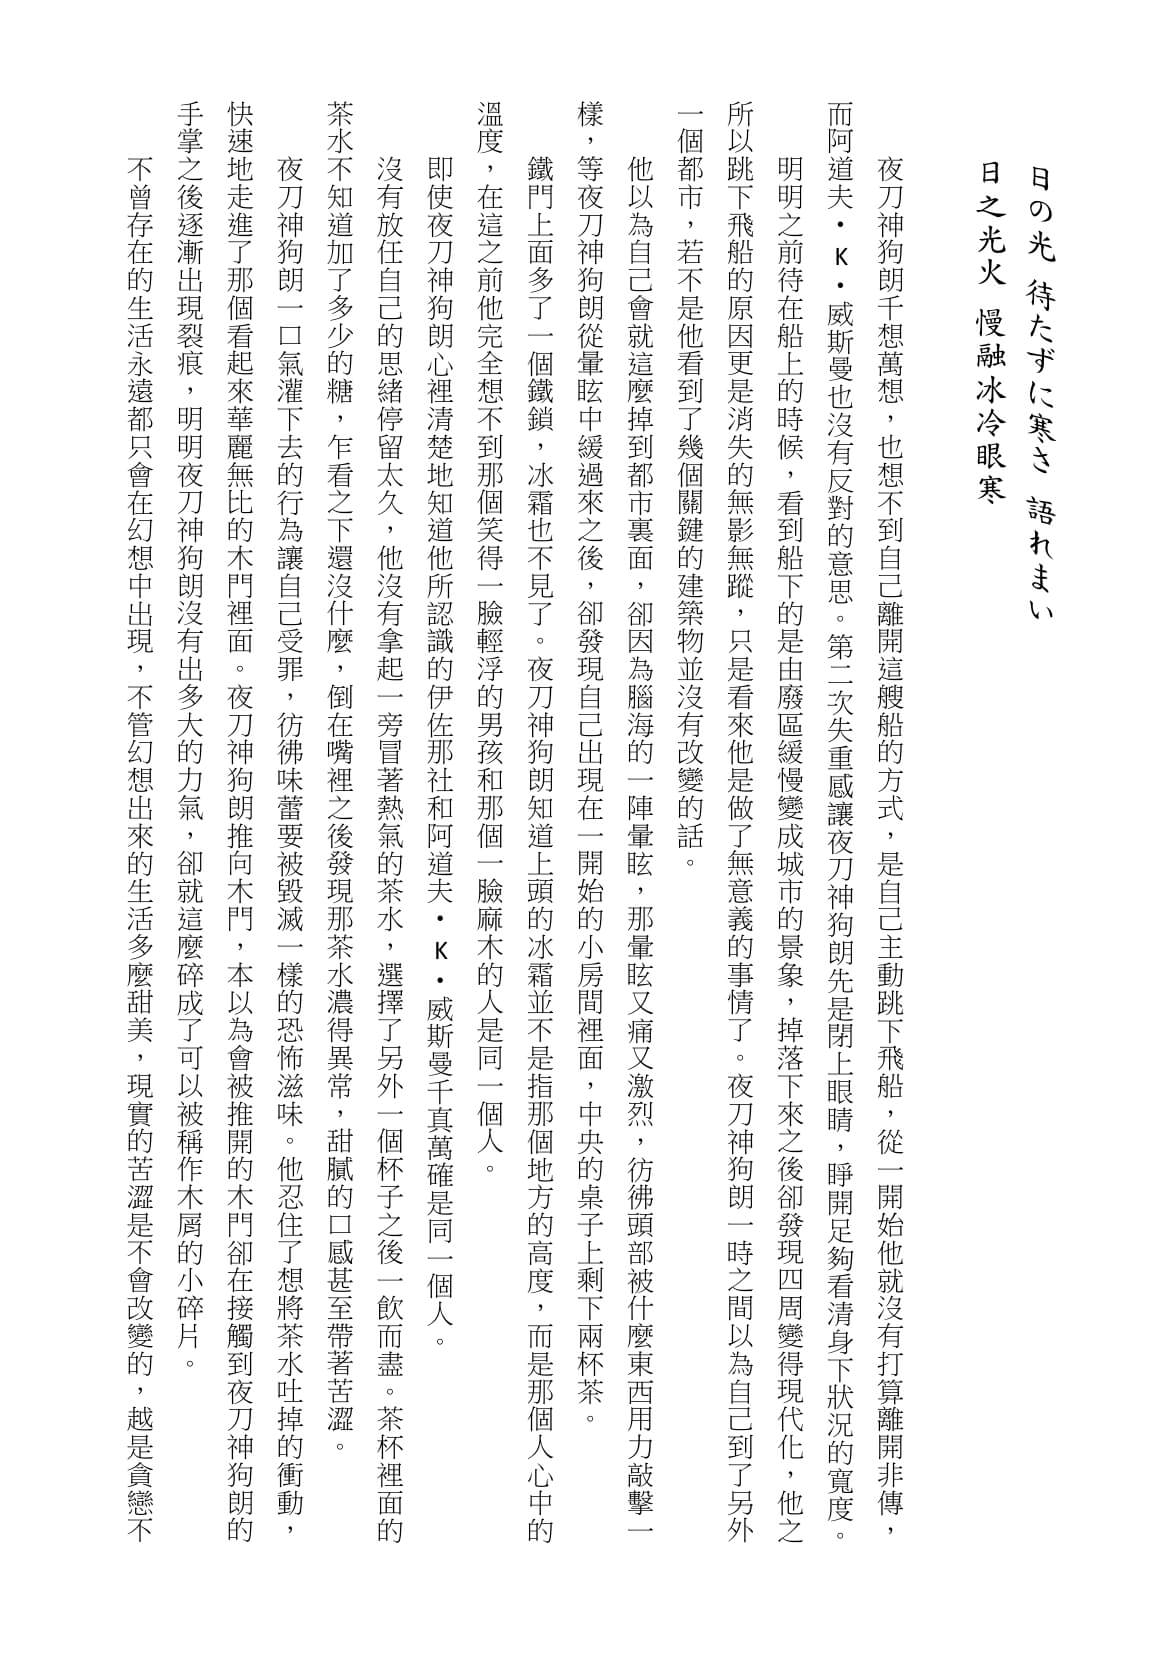 日の光 待たずに寒さ 語れまい
日之光火 慢融冰冷眼寒
夜刀神狗朗千想萬想，也想不到自己離開這艘船的方式，是自己主動跳下飛船，從一開始他就沒有打算離開非傳，
而阿道夫・K・威斯曼也沒有反對的意思。第二次失重感讓夜刀神狗朗先是閉上眼睛，睜開足夠看清身下狀況的寬度。
明明之前待在船上的時候，看到船下的是由廢區緩慢變成城市的景象，掉落下來之後卻發現四周變得現代化，他之
所以跳下飛船的原因更是消失的無影無蹤，只是看來他是做了無意義的事情了。夜刀神狗朗一時之間以為自己到了另外
一個都市，若不是他看到了幾個關鍵的建築物並沒有改變的話。
他以為自己會就這麼掉到都市裏面，卻因為腦海的一陣暈眩，那暈眩又痛又激烈，彷彿頭部被什麼東西用力敲擊一
樣，等夜刀神狗朗從暈眩中緩過來之後，卻發現自己出現在一開始的小房間裡面，中央的桌子上剩下兩杯茶。
鐵門上面多了一個鐵鎖，冰霜也不見了。夜刀神狗朗知道上頭的冰霜並不是指那個地方的高度，而是那個人心中的
溫度，在這之前他完全想不到那個笑得一臉輕浮的男孩和那個一臉麻木的人是同一個人。
即使夜刀神狗朗心裡清楚地知道他所認識的伊佐那社和阿道夫・K・威斯曼千真萬確是同一個人。
沒有放任自己的思緒停留太久，他沒有拿起一旁冒著熱氣的茶水，選擇了另外一個杯子之後一飲而盡。茶杯裡面的
茶水不知道加了多少的糖，乍看之下還沒什麼，倒在嘴裡之後發現那茶水濃得異常，甜膩的口感甚至帶著苦澀。
夜刀神狗朗一口氣灌下去的行為讓自己受罪，彷彿味蕾要被毀滅一樣的恐怖滋味。他忍住了想將茶水吐掉的衝動，
快速地走進了那個看起來華麗無比的木門裡面。夜刀神狗朗推向木門，本以為會被推開的木門卻在接觸到夜刀神狗朗的
手掌之後逐漸出現裂痕，明明夜刀神狗朗沒有出多大的力氣，卻就這麼碎成了可以被稱作木屑的小碎片。
不曾存在的生活永遠都只會在幻想中出現，不管幻想出來的生活多麼甜美，現實的苦澀是不會改變的，越是貪戀不